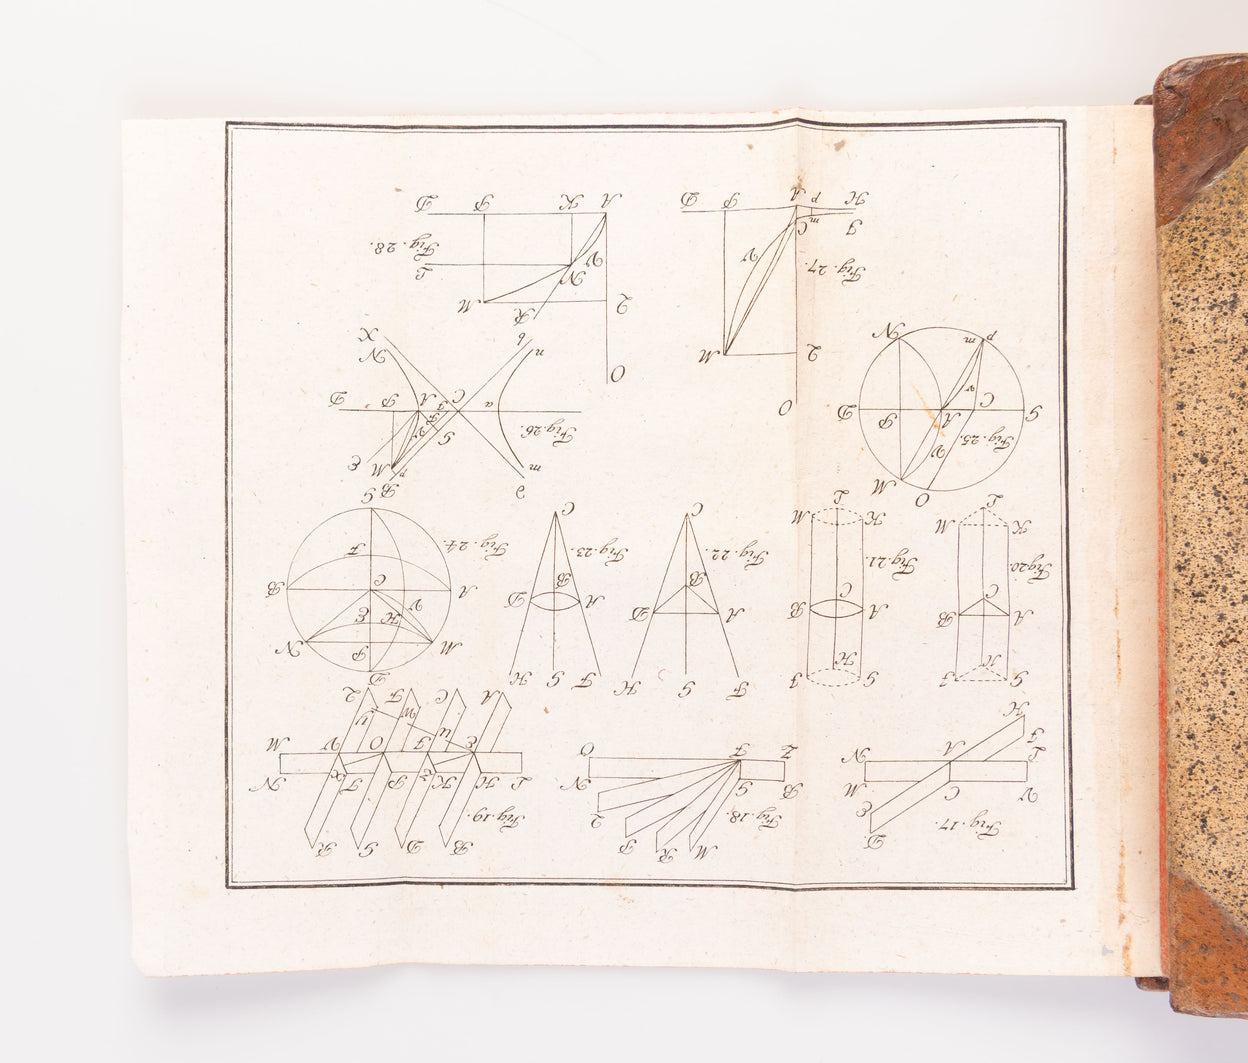 Fig. 17.
D
E
V C M
L A N
F
H
Fig. 18.
M R P
Q
B G N
Z F O
Fig. 19.
B D S R
L H K P T X N
E I O V M
u W y
A C F Q
Fig. 20.
G I
H
A B
C
K M
L
Fig. 21.
G I
H
A B
C
K M
L
Fig. 22.
F G H
A D
B
C
Fig. 23.
F G H
A D
B
C
Fig. 24.
D
M P N
H E
V
A C B
F
S
Fig. 25.
O M
V
G C A P D
p m N
Fig. 26.
m e
B
M E
G
a C A P D
n b N X
Fig. 27.
O
Q M
V
I C m
H p A P D
Fig. 28.
O
R
Q M
N
V L
A K P D